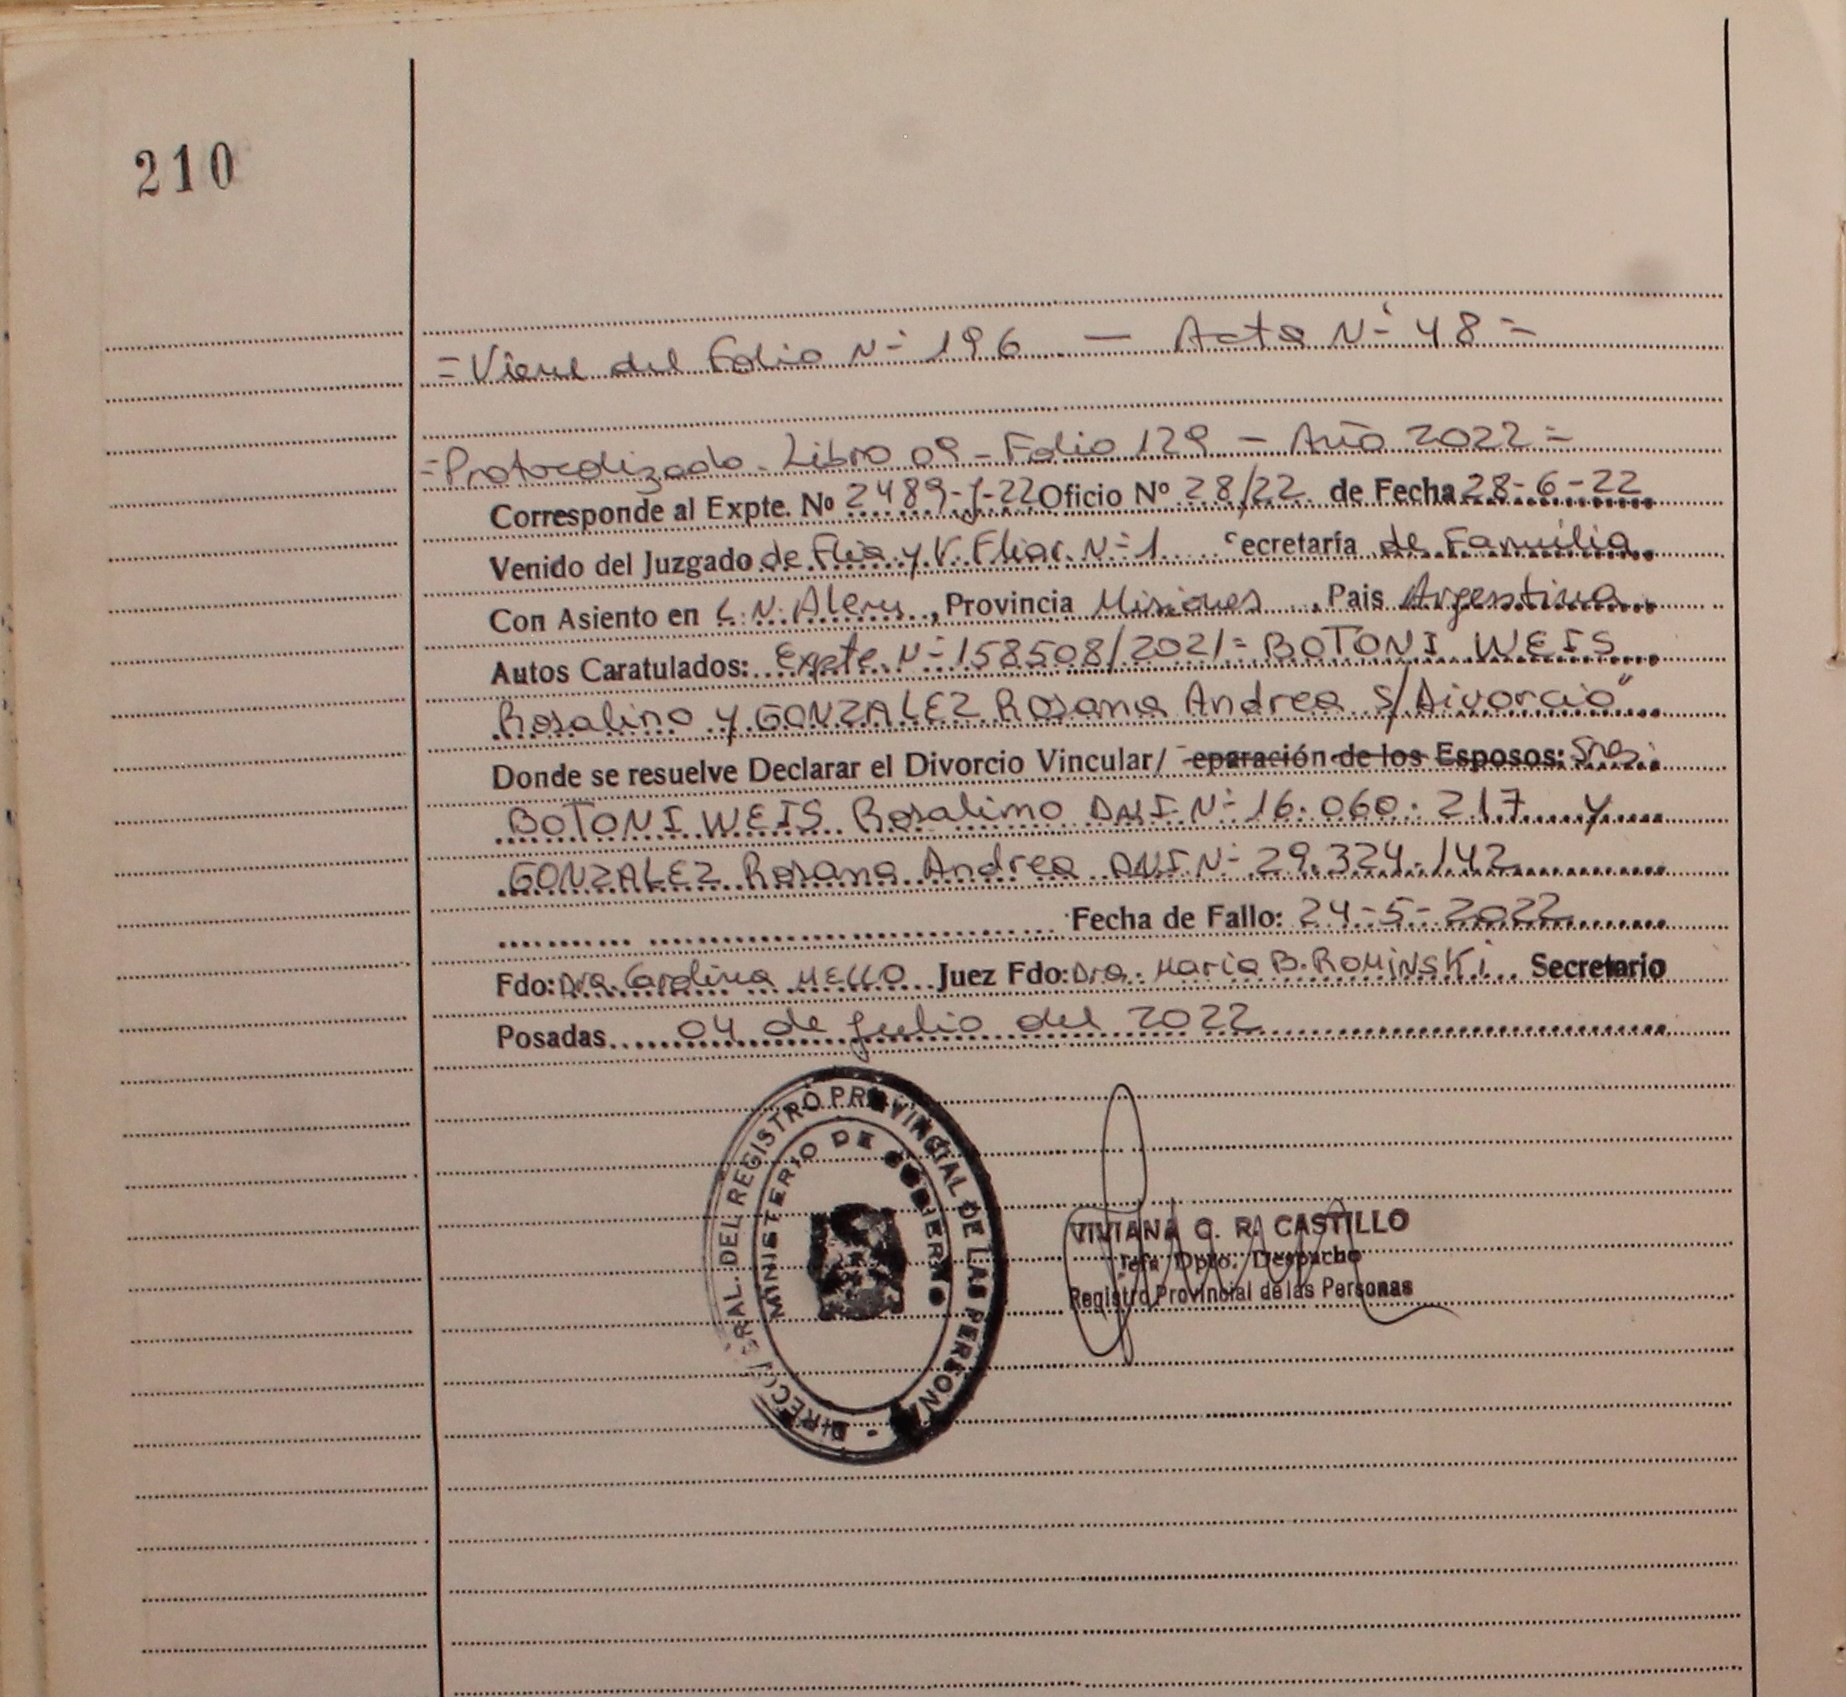 210
=Viene del Folio Nº 196 — Acta Nº 48=
=Protocolizado. Libro 09 - Folio 129 - Año 2022=
Corresponde al Expte. Nº 2489-J-22 Oficio Nº 28/22 de Fecha 28-6-22
Venido del Juzgado de Flia y V. Fliar. Nº 1 ecretaría de Familia
Con Asiento en L.N. Alem, Provincia Misiones, Pais Argentina
Autos Caratulados: Expte. Nº 158508/2021= BOTONI WEIS
Rosalino y GONZALEZ Rosana Andrea s/Divorcio"
Donde se resuelve Declarar el Divorcio Vincular/ eparación de los Esposos: Sres:
BOTONI WEIS Rosalino DNI Nº 16.060.217 y
GONZALEZ Rosana Andrea DNI Nº 29.324.142
Fecha de Fallo: 24-5-2022
Fdo: Dra. Carolina MELLO Juez Fdo: Dra. Maria B. ROMINSKI Secretario
Posadas 04 de Julio del 2022
DEL REGISTRO PROVINCIAL DE LAS PERSONA
MINISTERIO DE GOBIERNO
VIVIANA C. R. CASTILLO
Jefa Dpto. Despacho
Registro Provincial de las Personas